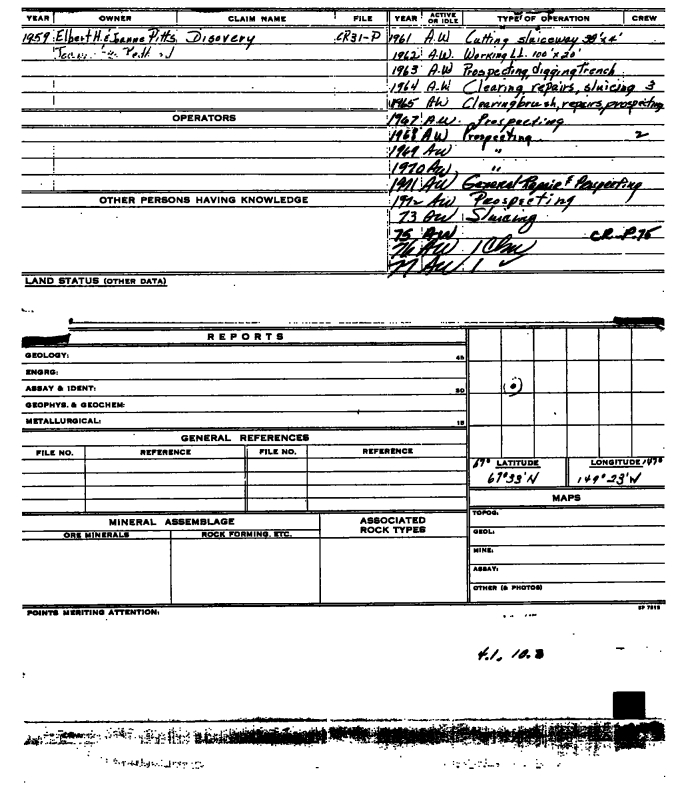 YEAR OWNER CLAIM NAME FILE YEAR ACTIVE OR IDLE TYPE OF OPERATION CREW
1959 Elbert H. & Jeanne Pitts Disovery CR31-P 1961 A.W Cutting sluiceway 30'x4'
1962 A.W. Working L.L. 100'x20'
1963 A.W Prospecting, digging trench
1964 A.W Clearing, repairs, sluicing 3
1965 AW Clearing brush, repairs, prospecting
OPERATORS
1967 A.W. Prospecting
1968 AW Prospecting 2
1969 AW "
1970 AW "
1971 AW General Repair & Prospecting
OTHER PERSONS HAVING KNOWLEDGE
1972 AW Prospecting
73 AW Sluicing
75 AW CR. P.75
76 AW 1 Clm
77 AW 1
LAND STATUS (OTHER DATA)
REPORTS
GEOLOGY: 45
ENGRG:
ASSAY & IDENT: 30
GEOPHYS. & GEOCHEM:
METALLURGICAL: 15
GENERAL REFERENCES
FILE NO. REFERENCE FILE NO. REFERENCE
67° LATITUDE LONGITUDE 147°
67°33'N 149°23'W
MAPS
TOPOG:
MINERAL ASSEMBLAGE ASSOCIATED ROCK TYPES
ORE MINERALS ROCK FORMING, ETC.
GEOL:
MINE:
ASSAY:
OTHER (& PHOTOS)
POINTS MERITING ATTENTION:
SP 7818
4.1, 10.3